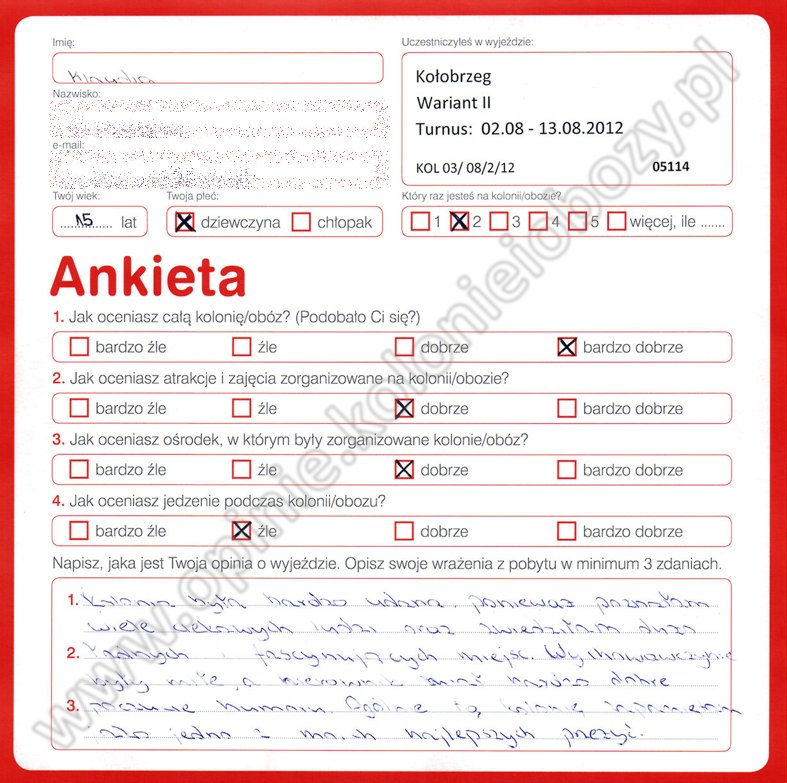 Imię:
Klaudia
Uczestniczyłeś w wyjeździe:
Kołobrzeg
Wariant II
Turnus: 02.08 - 13.08.2012
KOL 03/ 08/2/12 05114
Nazwisko:
e-mail:
Twój wiek: Twoja płeć: Który raz jesteś na kolonii/obozie?
15 lat dziewczyna chłopak 1 2 3 4 5 więcej, ile .......
Ankieta
1. Jak oceniasz całą kolonię/obóz? (Podobało Ci się?)
bardzo źle źle dobrze bardzo dobrze
2. Jak oceniasz atrakcje i zajęcia zorganizowane na kolonii/obozie?
bardzo źle źle dobrze bardzo dobrze
3. Jak oceniasz ośrodek, w którym były zorganizowane kolonie/obóz?
bardzo źle źle dobrze bardzo dobrze
4. Jak oceniasz jedzenie podczas kolonii/obozu?
bardzo źle źle dobrze bardzo dobrze
Napisz, jaka jest Twoja opinia o wyjeździe. Opisz swoje wrażenia z pobytu w minimum 3 zdaniach.
1. Kolonia była bardzo udana, ponieważ poznałam
wiele ciekawych ludzi oraz zwiedziłam dużo
2. ładnych i fascynujących miejsc. Wychowawczynie
były miłe, a kierownik miał bardzo dobre
3. poczucie humoru. Ogólnie tą kolonię zapamiętam
jako jedno z moich najlepszych przeżyć.
www.opinie.kolonieiobozy.pl